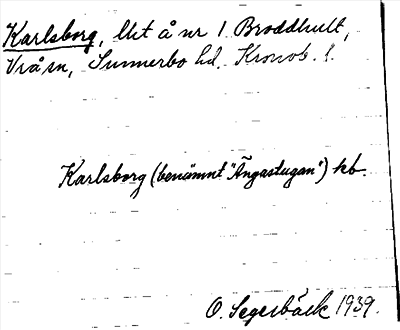 Karlsborg, lht å nr 1 Broddhult,
Vrå sn, Sunnerbo hd, Kronob. l.
Karlsborg (benämnt "Ängastugan") kb.
O. Segerbäck 1939.